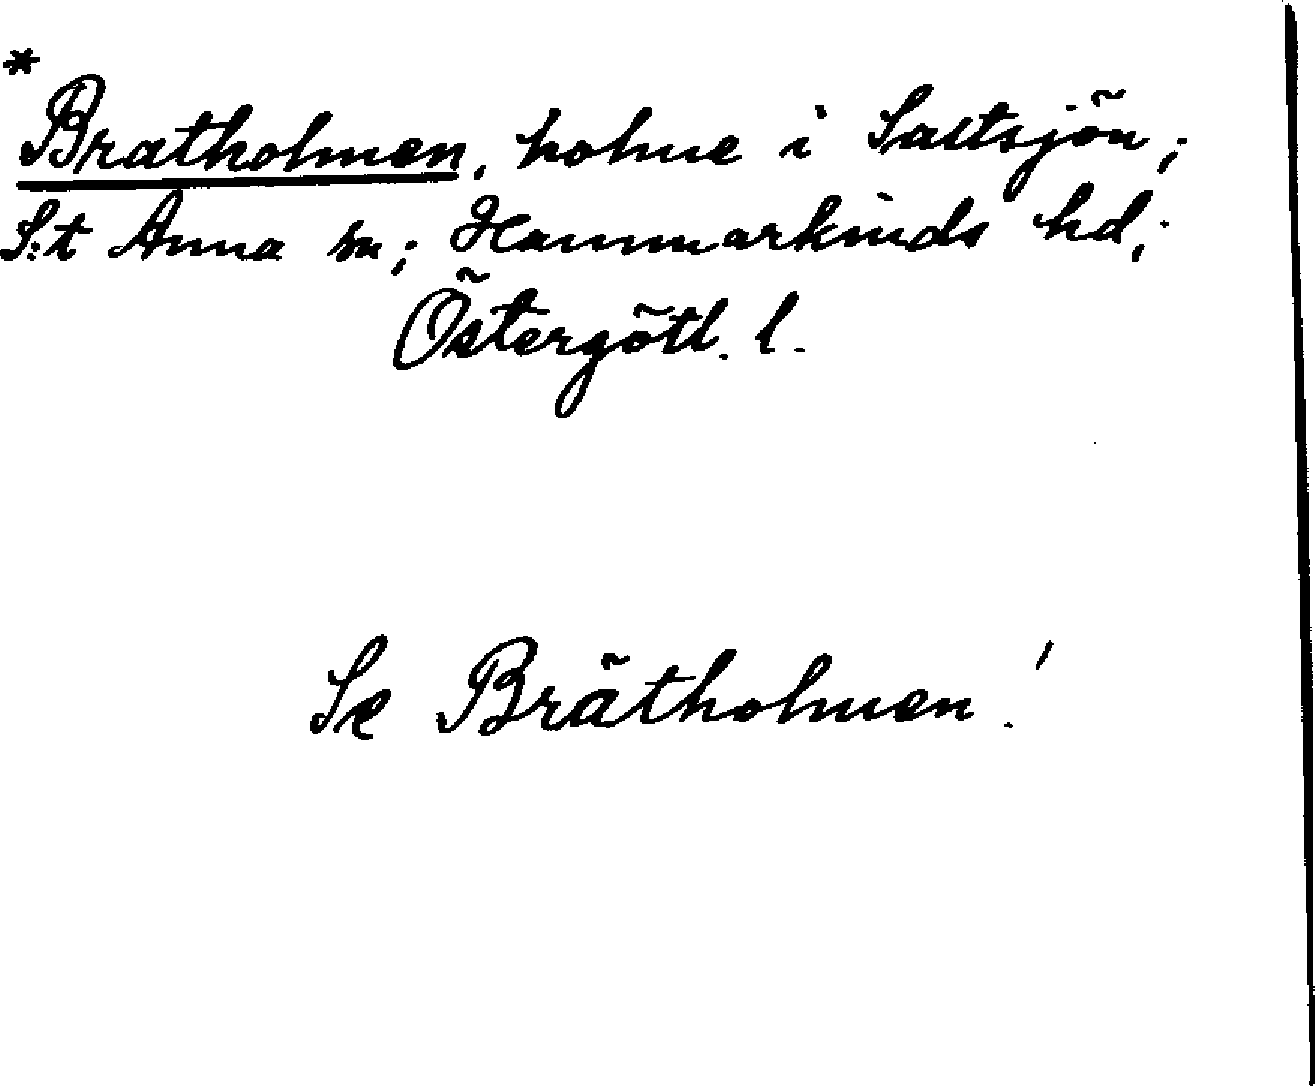 *
Bratholmen, holme i Saltsjön;
S:t Anna sn; Hammarkinds hd;
Östergötl. l.
Se Brätholmen!